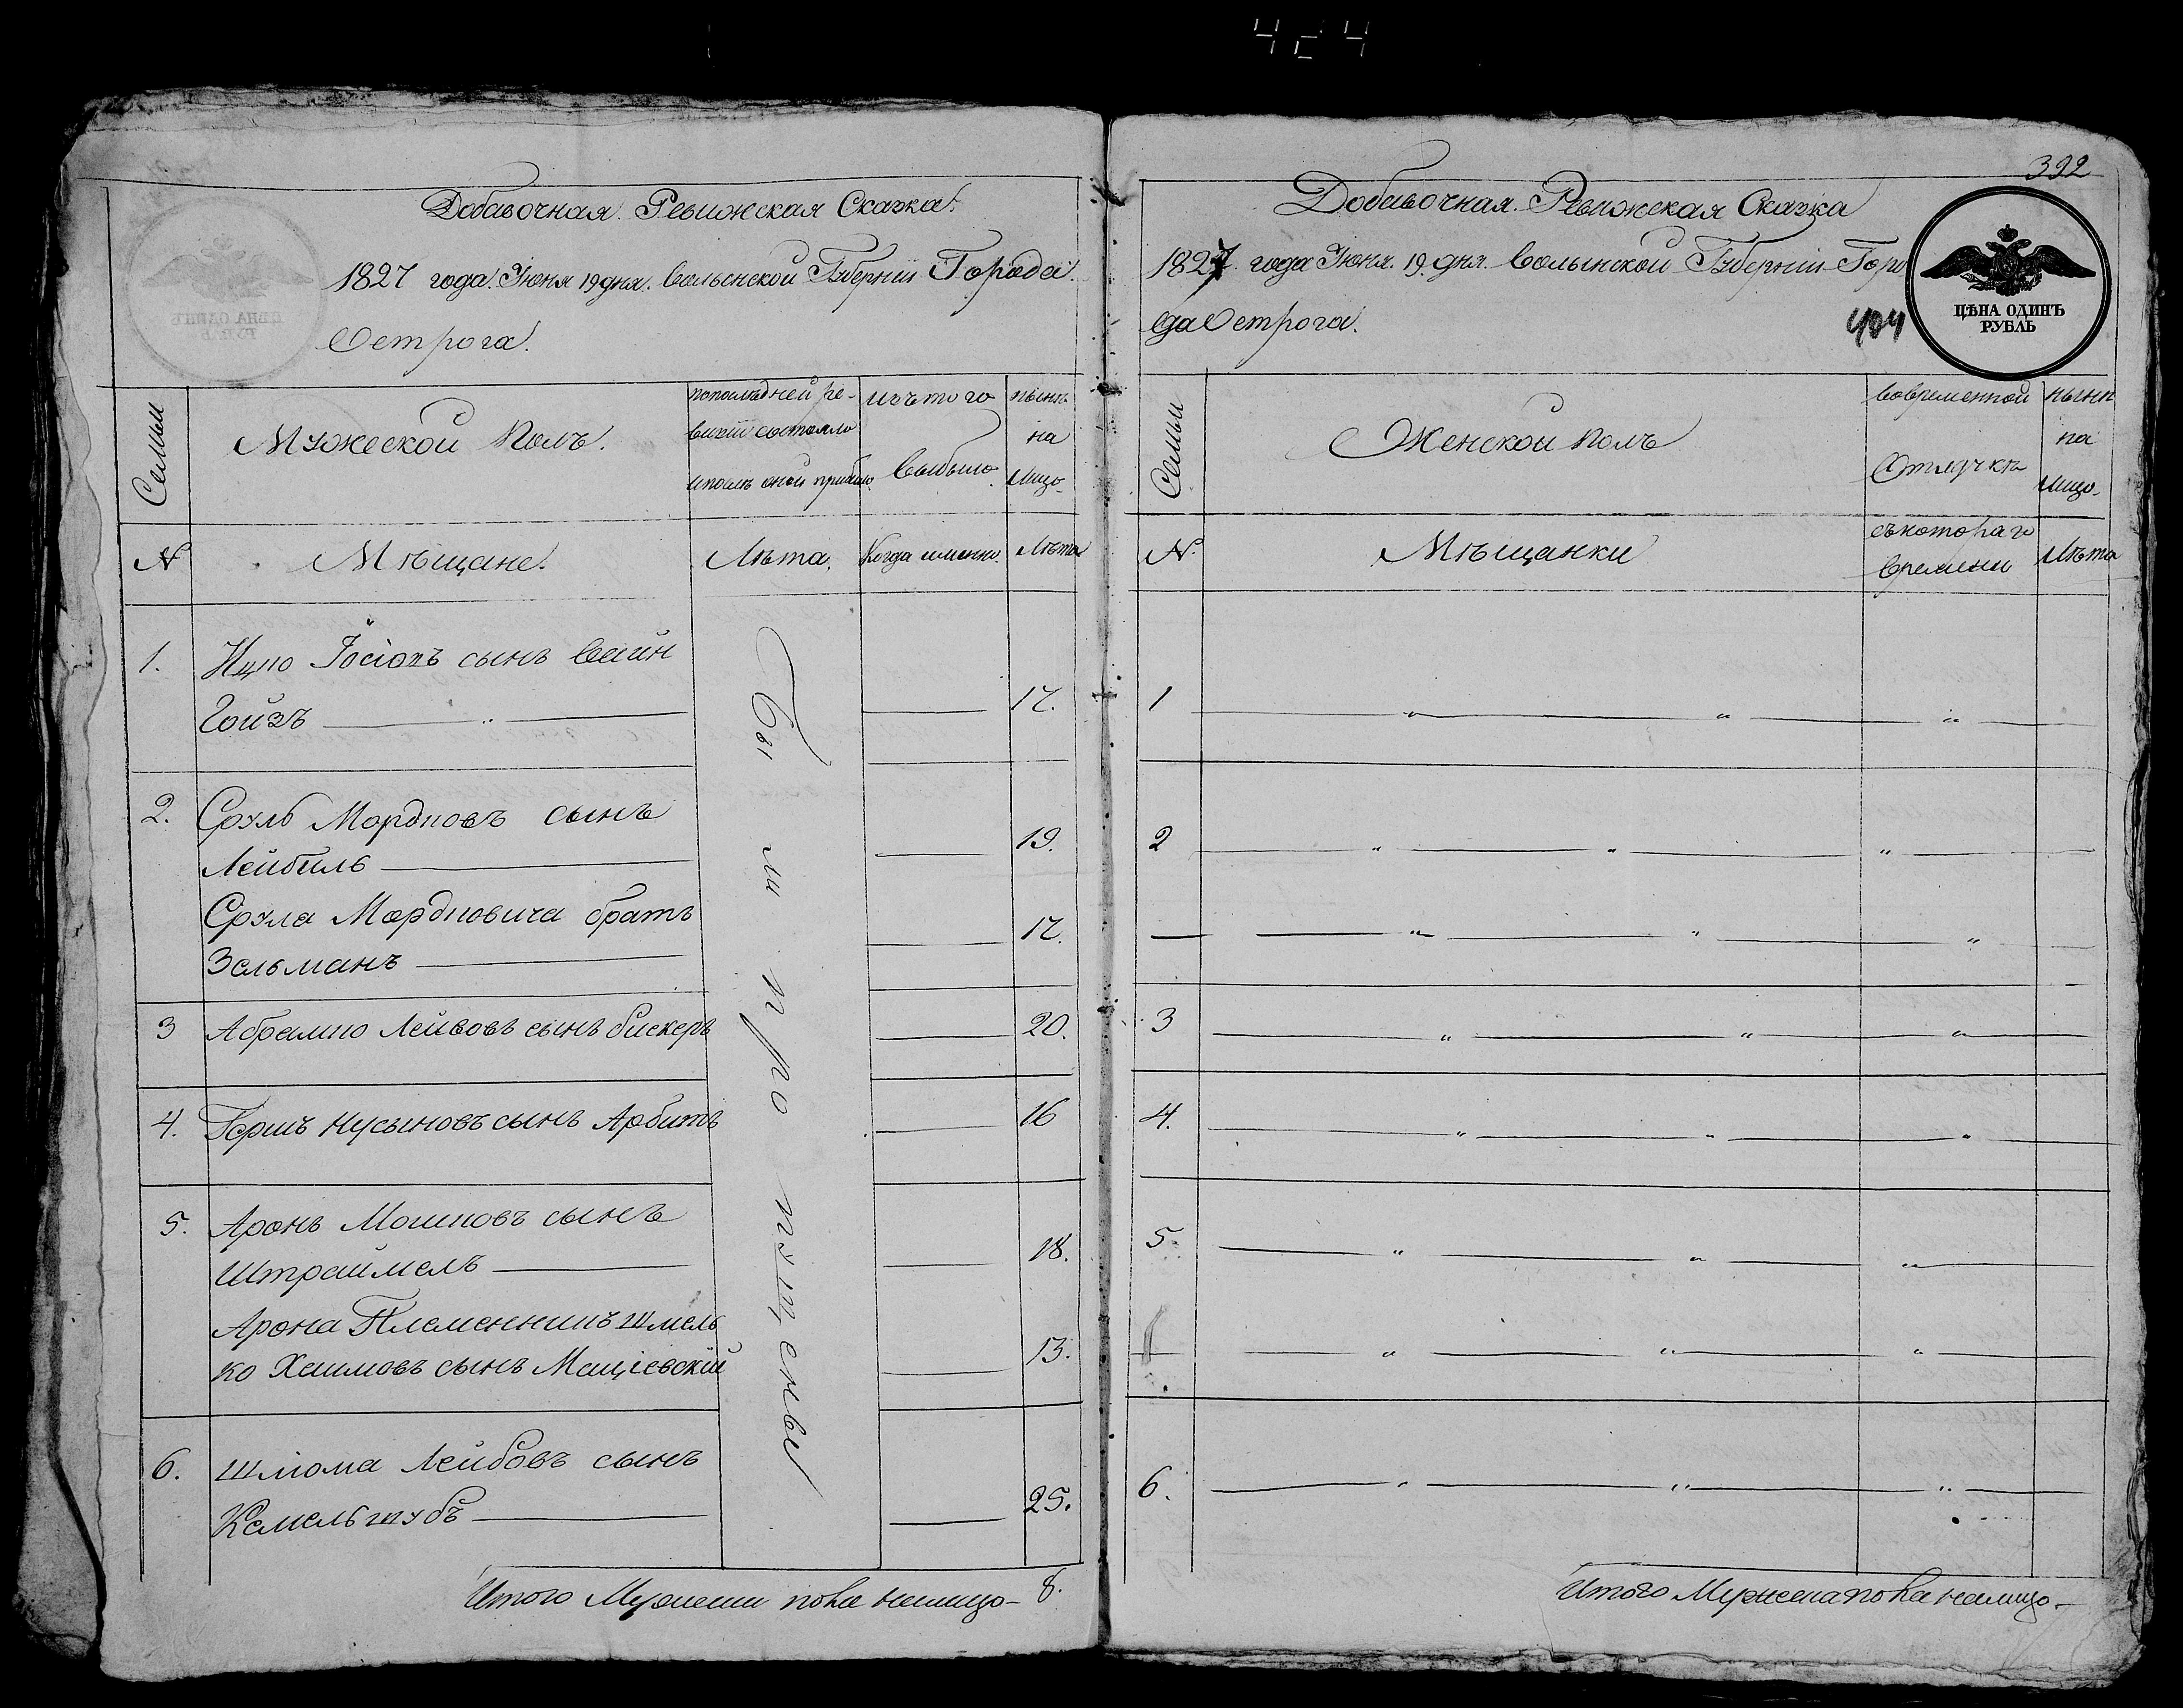 424
Добавочная Ревижская Сказка
1827 года Июня 19 дня. Волынской Губернiи Города
Острога.
Семьи
Мужеской Полъ.
попослѣдней ре-
визiи состояло
ипослѣ оной прибыло
изътого
выбыло
нынѣ
на
лицо
№
Мѣщане.
Лѣта.
Когда именно.
Лѣта
1. Ицко Iосiовъ сынъ Вайн
Гойзъ 17.
2. Сруль Мордковъ сынъ
Лейбиль 19.
Срула Мордковича братъ
Зельманъ 17.
3 Абрамко Лейбовъ сынъ Бискеръ 20.
4. Гершъ Нусыновъ сынъ Арбитъ 16
5. Аронъ Мошковъ сынъ
Штраймелъ 18.
Арона Племенникъ Шмель
ко Хаимовъ сынъ Мацiевскiй 13.
6. Шлiома Лейбовъ сынъ
Кемельгшубъ 25.
Бы ли пропущены
Итого Мужеска пола налицо 8.
392
Добавочная Ревижская Сказка
1827 года Июня. 19. дня. Волынской Губернiи Горо
да Острога.
404
ЦѢНА ОДИНЪ
РУБЛЬ
Семьи
Женской полъ
вовременной
Отлучкѣ
нынѣ
на
лицо
№
Мѣщанки
съкотораго
времени
Лѣта
1
2
3
4.
5.
6.
Итого Мужеска пола налицо